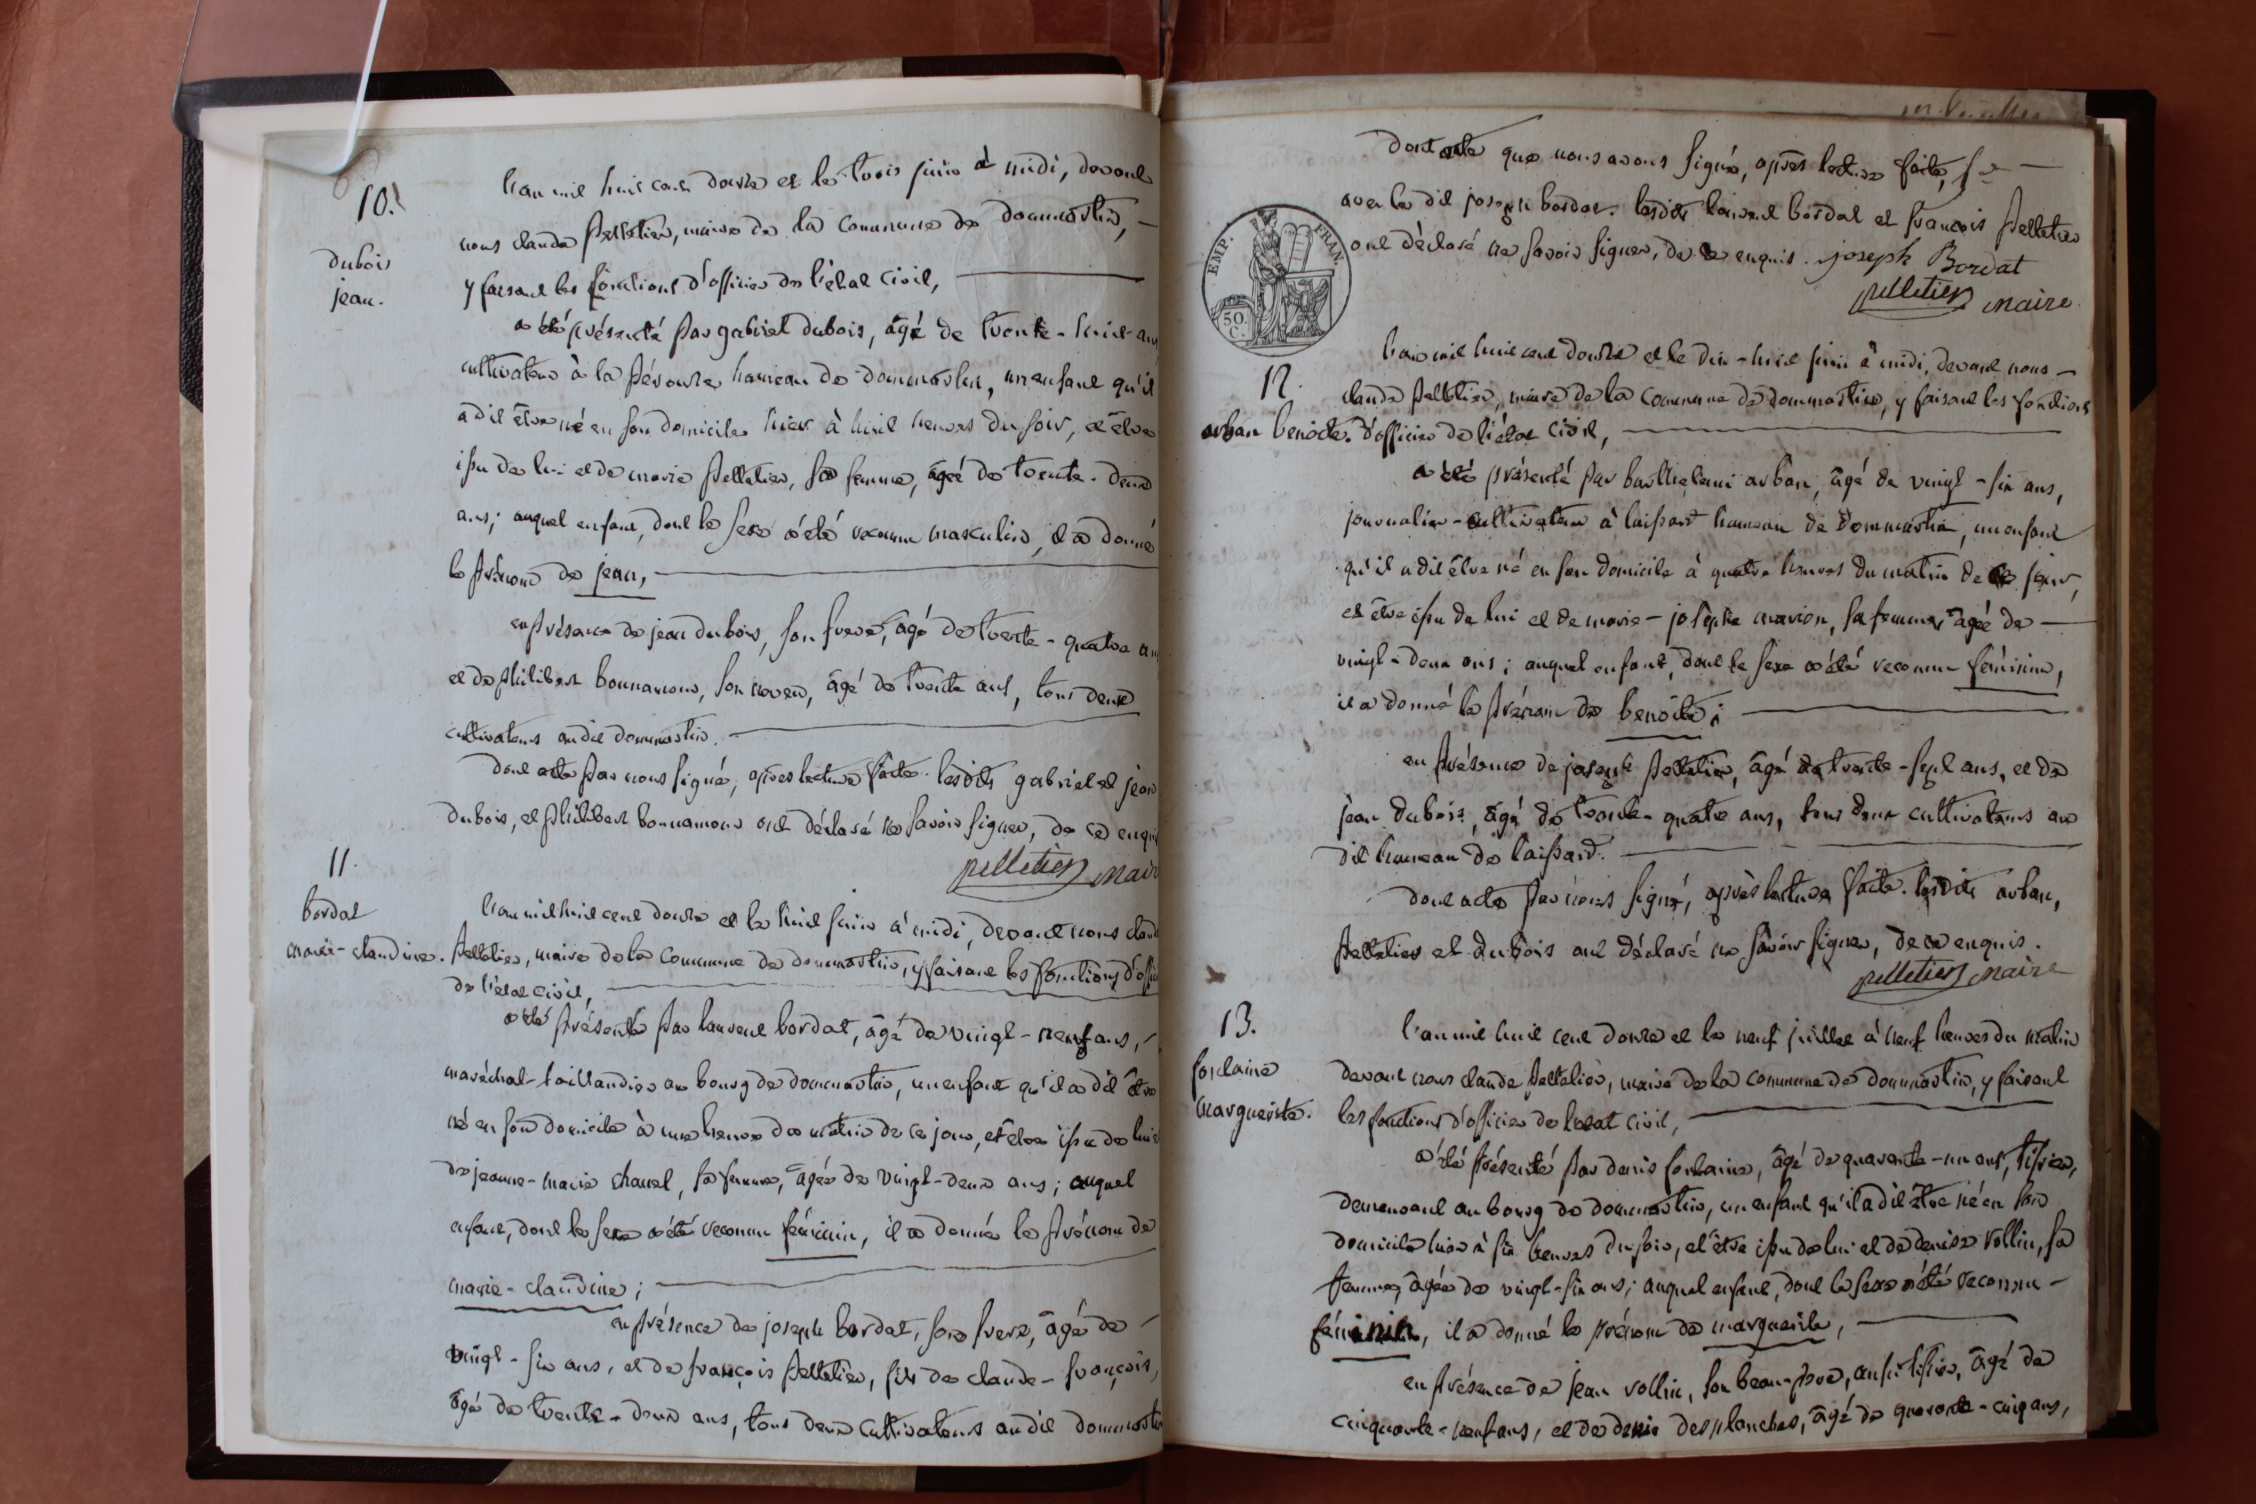 10.
dubois
jean.
L'an mil huit cent douze et le trois juin à midi, devant
nous claude pelletier, maire de la commune de dommartin,
y faisant les fonctions d'officier de l'état civil,
a été présenté par gabriel dubois, âgé de trente-huit ans
cultivateur à la hameau de dommartin, un enfant qu'il
a dit être né en son domicile hier à huit heures du soir, et être
issu de lui et de marie pelletier, sa femme, âgée de trente-deux
ans; auquel enfant, dont le sexe a été reconnu masculin, il a donné
le prénom de jean,
en présence de jean dubois, son frere, âgé de trente-quatre an
et de philibert bonnamour, son âgé de trente ans, tous deux
cultivateurs au dit dommartin.
dont acte par nous signé, après lecture faite. lesdits gabriel et jean
dubois, et philibert bonnamour ont déclaré ne savoir signer, de ce enquis
pelletier mair
11.
bordat
marie-claudine.
L'an mil huit cent douze et le huit juin à midi, devant nous claud
pelletier, maire de la commune de dommartin, y faisant les fonctions d'offi
de l'état civil,
a été présenté par laurent bordat, âgé de vingt-neuf ans,
maréchal-taillandier au bourg de dommartin, un enfant qu'il a dit être
né en son domicile à une heure du matin de ce jour, et être issu de lui
de jeanne-marie chanel, sa femme, âgée de vingt-deux ans; auquel
enfant, dont le sexe a été reconnu féminin, il a donné le prénom de
marie-claudine;
en présence de joseph bordat, son frere, âgé de
vingt-six ans, et de françois pelletier, fils de claude-françois,
âgé de trente-deux ans, tous deux cultivateurs au dit dommartin
dont acte que nous avons signé, après lecture faite,
avec le dit joseph bordat. lesdits laurent bordat et françois pelletier
ont déclaré ne savoir signer, de ce enquis. joseph Bordat
pelletier maire
EMP. FRAN.
50 C.
12.
arban benoite.
L'an mil huit cent douze et le dix-huit juin à midi, devant nous
claude pelletier, maire de la commune de dommartin, y faisant les fonctions
d'officier de l'état civil,
a été présenté par barthelemi arban, âgé de vingt-six ans,
journalier-cultivateur à laissard hameau de dommartin, un enfant
qu'il a dit être né en son domicile à quatre heures du matin de ce jour,
et être issu de lui et de marie-josephe marion, sa femme, âgée de
vingt-deux ans; auquel enfant, dont le sexe a été reconnu féminin,
il a donné le prénom de benoite;
en présence de joseph pelletier, âgé de trente-sept ans, et de
jean dubois, âgé de trente-quatre ans, tous deux cultivateurs au
dit hameau de laissard.
dont acte par nous signé, après lecture faite. lesdits arban,
pelletier et dubois ont déclaré ne savoir signer, de ce enquis.
pelletier maire
13.
fontaine
marguerite.
l'an mil huit cent douze et le neuf juillet à neuf heures du matin
devant nous claude pelletier, maire de la commune de dommartin, y faisant
les fonctions d'officier de l'état civil,
a été présenté par denis fontaine, âgé de quarante-un ans, tisier,
demeurant au bourg de dommartin, un enfant qu'il a dit être né en son
domicile hier à six heures du soir, et être issu de lui et de denise vollin, sa
femme, âgée de vingt-six ans; auquel enfant, dont le sexe a été reconnu
féminin, il a donné le prénom de marguerite,
en présence de jean vollin, son beau-père, aussi tisier, âgé de
cinquante-neuf ans, et de denis desplanches, âgé de quarante-cinq ans,